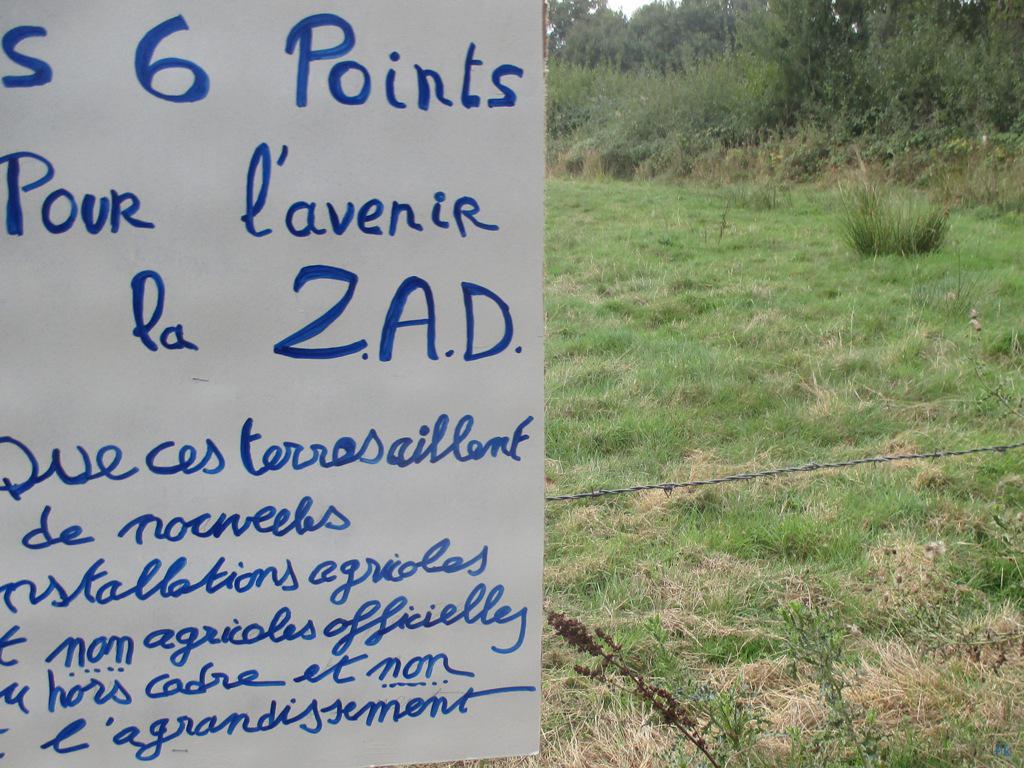 s 6 Points
Pour l'avenir
la Z.A.D.
Que ces terres aillent
de nouvelles
nstallations agricoles
t non agricoles officielles
u hors cadre et non
l'agrandissement